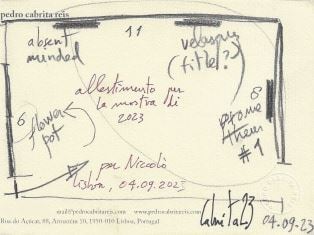 pedro cabrita reis
absent
minded
11
velasquez
(title?)
allestimento per
la mostra di
2023
6
flower
pot
8
prome
theus
#1
per Niccolò
Lisboa, 04.09.2023
mail@pedrocabritareis.com www.pedrocabritareis.com
Rua do Açúcar, 88, Armazém 10, 1950-010 Lisboa, Portugal
04.09.23